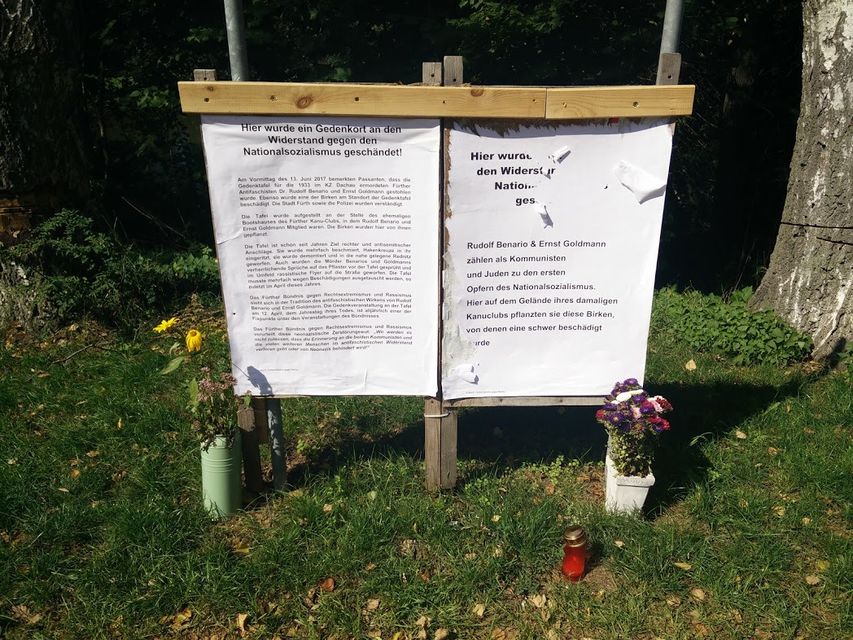 Hier wurde ein Gedenkort an den
Widerstand gegen den
Nationalsozialismus geschändet!
Am Vormittag des 13. Juni 2017 bemerkten Passanten, dass die
Gedenktafel für die 1933 im KZ Dachau ermordeten Fürther
Antifaschisten Dr. Rudolf Benario und Ernst Goldmann gestohlen
wurde. Ebenso wurde eine der Birken am Standort der Gedenktafel
beschädigt. Die Stadt Fürth sowie die Polizei wurden verständigt.
Die Tafel wurde aufgestellt an der Stelle des ehemaligen
Bootshauses des Fürther Kanu-Clubs, in dem Rudolf Benario und
Ernst Goldmann Mitglied waren. Die Birken wurden hier von ihnen
gepflanzt.
Die Tafel ist schon seit Jahren Ziel rechter und antisemitischer
Anschläge. Sie wurde mehrfach beschmiert, Hakenkreuze in ihr
eingeritzt, sie wurde demontiert und in die nahe gelegene Rednitz
geworfen. Auch wurden die Mörder Benarios und Goldmanns
verherrlichende Sprüche auf das Pflaster vor der Tafel gesprüht und
im Umfeld rassistische Flyer auf die Straße geworfen. Die Tafel
musste mehrfach wegen Beschädigungen ausgetauscht werden, so
zuletzt im April dieses Jahres.
Das Fürther Bündnis gegen Rechtsextremismus und Rassismus
sieht sich in der Tradition des antifaschistischen Wirkens von Rudolf
Benario und Ernst Goldmann. Die Gedenkveranstaltung an der Tafel
am 12. April, dem Jahrestag ihres Todes, ist alljährlich einer der
Fixpunkte unter den Veranstaltungen des Bündnisses.
Das Fürther Bündnis gegen Rechtsextremismus und Rassismus
verurteilt diese neonazistische Zerstörungswut. „Wir werden es
nicht zulassen, dass die Erinnerung an die beiden Kommunisten und
die vielen weiteren Menschen im antifaschistischen Widerstand
verloren geht oder von Neonazis behindert wird!“
Hier wurde
den Widerstand
Nation
ges
Rudolf Benario & Ernst Goldmann
zählen als Kommunisten
und Juden zu den ersten
Opfern des Nationalsozialismus.
Hier auf dem Gelände ihres damaligen
Kanuclubs pflanzten sie diese Birken,
von denen eine schwer beschädigt
urde